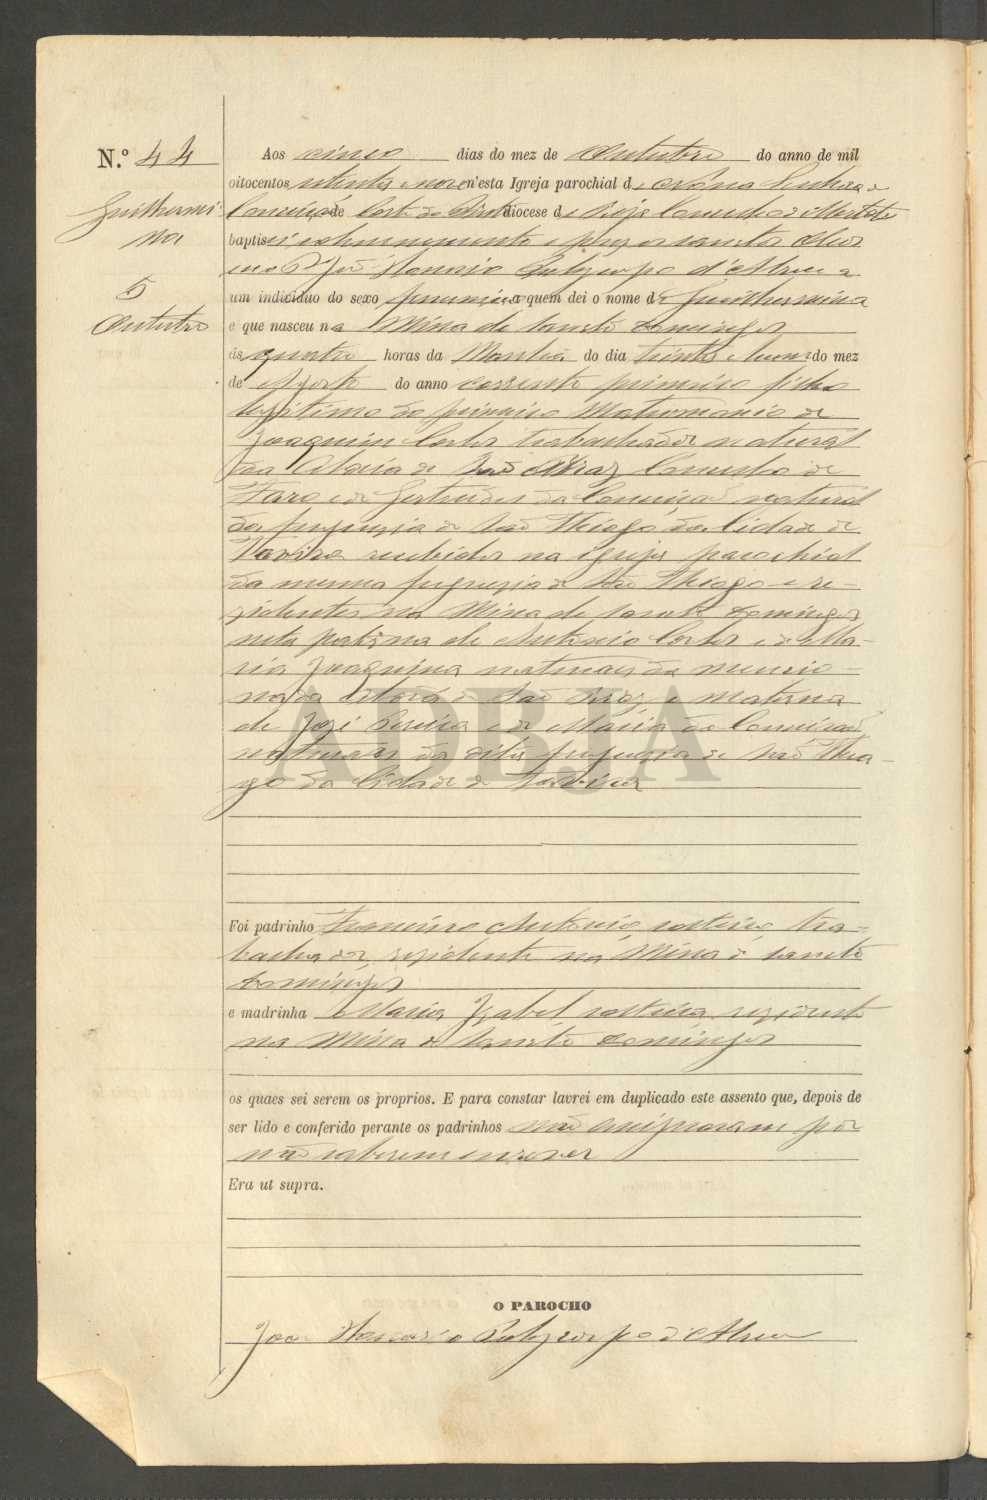 N.º 44
Guilhermi
na
5
Outubro
Aos cinco dias do mez de Outubro do anno de mil
oitocentos oitenta e nove n'esta Igreja parochial de Nossa Senhora da
Conceição de Corte do Pinto diocese de Beja Concelho de Mertola
baptisei solemnemente e puz os sanctos oleos
eu o P.e João Honorio Polycarpo d'Abreu a
um individuo do sexo feminino a quem dei o nome de Guilhermina
e que nasceu na Mina de Sancto Domingos
ás quatro horas da Manhã do dia trinta e hum do mez
de Agosto do anno corrente primeiro filho
legitimo do primeiro Matrimonio de
Joaquim Costa trabalhador natural
da Aldeia de São Braz Concelho de
Faro e de Gertrudes da Conceição natural
da freguezia de São Thiago da Cidade de
Tavira recebidos na igreja parochial
da mesma freguezia de São Thiago e re-
zidentes na Mina de Sancto Domingos
neta paterna de Antonio Costa e de Ma-
ria Joaquina naturaes da mencio-
nada Aldeia de São Braz e materna
de José Pereira e de Maria da Conceição
naturaes da dita freguezia de São Thia-
go da Cidade de Tavira
ADBJA
Foi padrinho Francisco Antonio, solteiro, tra-
balhador, rezidente na Mina de Sancto
Domingos
e madrinha Maria Izabel solteira, rezidente
na Mina de Sancto Domingos
os quaes sei serem os proprios. E para constar lavrei em duplicado este assento que, depois de
ser lido e conferido perante os padrinhos não assignaram por
não saberem escrever
Era ut supra.
O PAROCHO
João Honorio Polycarpo d'Abreu